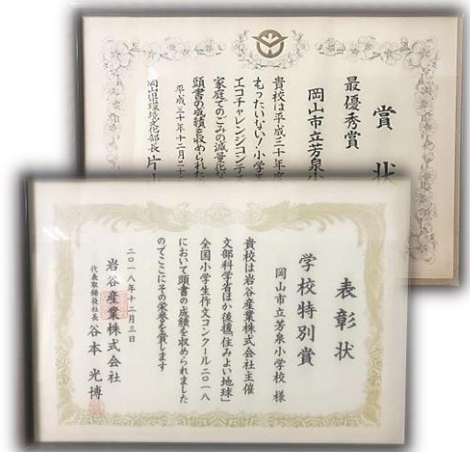 賞状
最優秀賞
岡山市立芳泉小
貴校は平成三十年度
もったいない!小学生
エコチャレンジコンテ
家庭でのごみの減量化
頭書の成績を収められた
平成三十年十二月二十
岡山県環境文化部長 片
表彰状
学校特別賞
岡山市立芳泉小学校 様
貴校は岩谷産業株式会社主催
文部科学省ほか後援「住みよい地球」
全国小学生作文コンクール二〇一八
において頭書の成績を収められました
のでここにその栄誉を賞します
二〇一八年十二月三日
岩谷産業株式会社
代表取締役社長 谷本光博